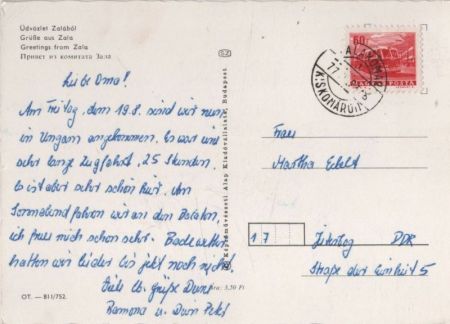 Üdvözlet Zalából
Grüße aus Zala
Greetings from Zala
Привет из комитата Зала
Liebe Oma!
Am Freitag, dem 19.8. sind wir nun
in Ungarn angekommen. Es war eine
sehr lange Zugfahrt. 25 Stunden.
Es ist aber sehr schön hier. Am
Sonnabend fahren wir an den Balaton,
ich freu mich schon sehr. Badewetter
hatten wir leider bis jetzt noch nicht
Viele lb. Grüße
Ramona u.
OT. — 811/752.
Képzőművészeti Alap Kiadóvállalata, Budapest
Ára: 3,50 Ft
60
POSTA
KISKOMÁROM
Frau
Martha
17
DDR
Straße der Einheit 5